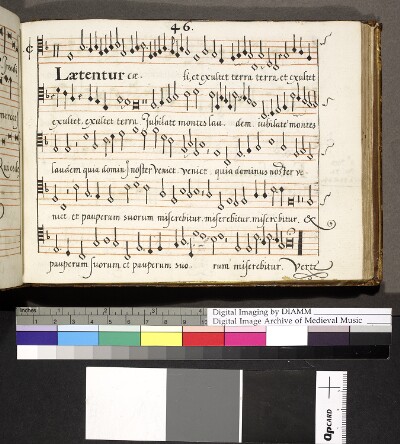 46.
Lætentur cæ- li, et exultet terra terra, et exultet
exultet, exultet terra Jubilate montes lau- dem. iubilate montes
laudem quia domin9 noster veniet. veniet. quia dominus noster ve-
niet. et pauperum suorum miserebitur. miserebitur. miserebitur. &
pauperum suorum et pauperum suo- rum miserebitur. Verte
inches 1 2 3
Digital Imaging by DIAMM
Digital Image Archive of Medieval Music
QPCARD